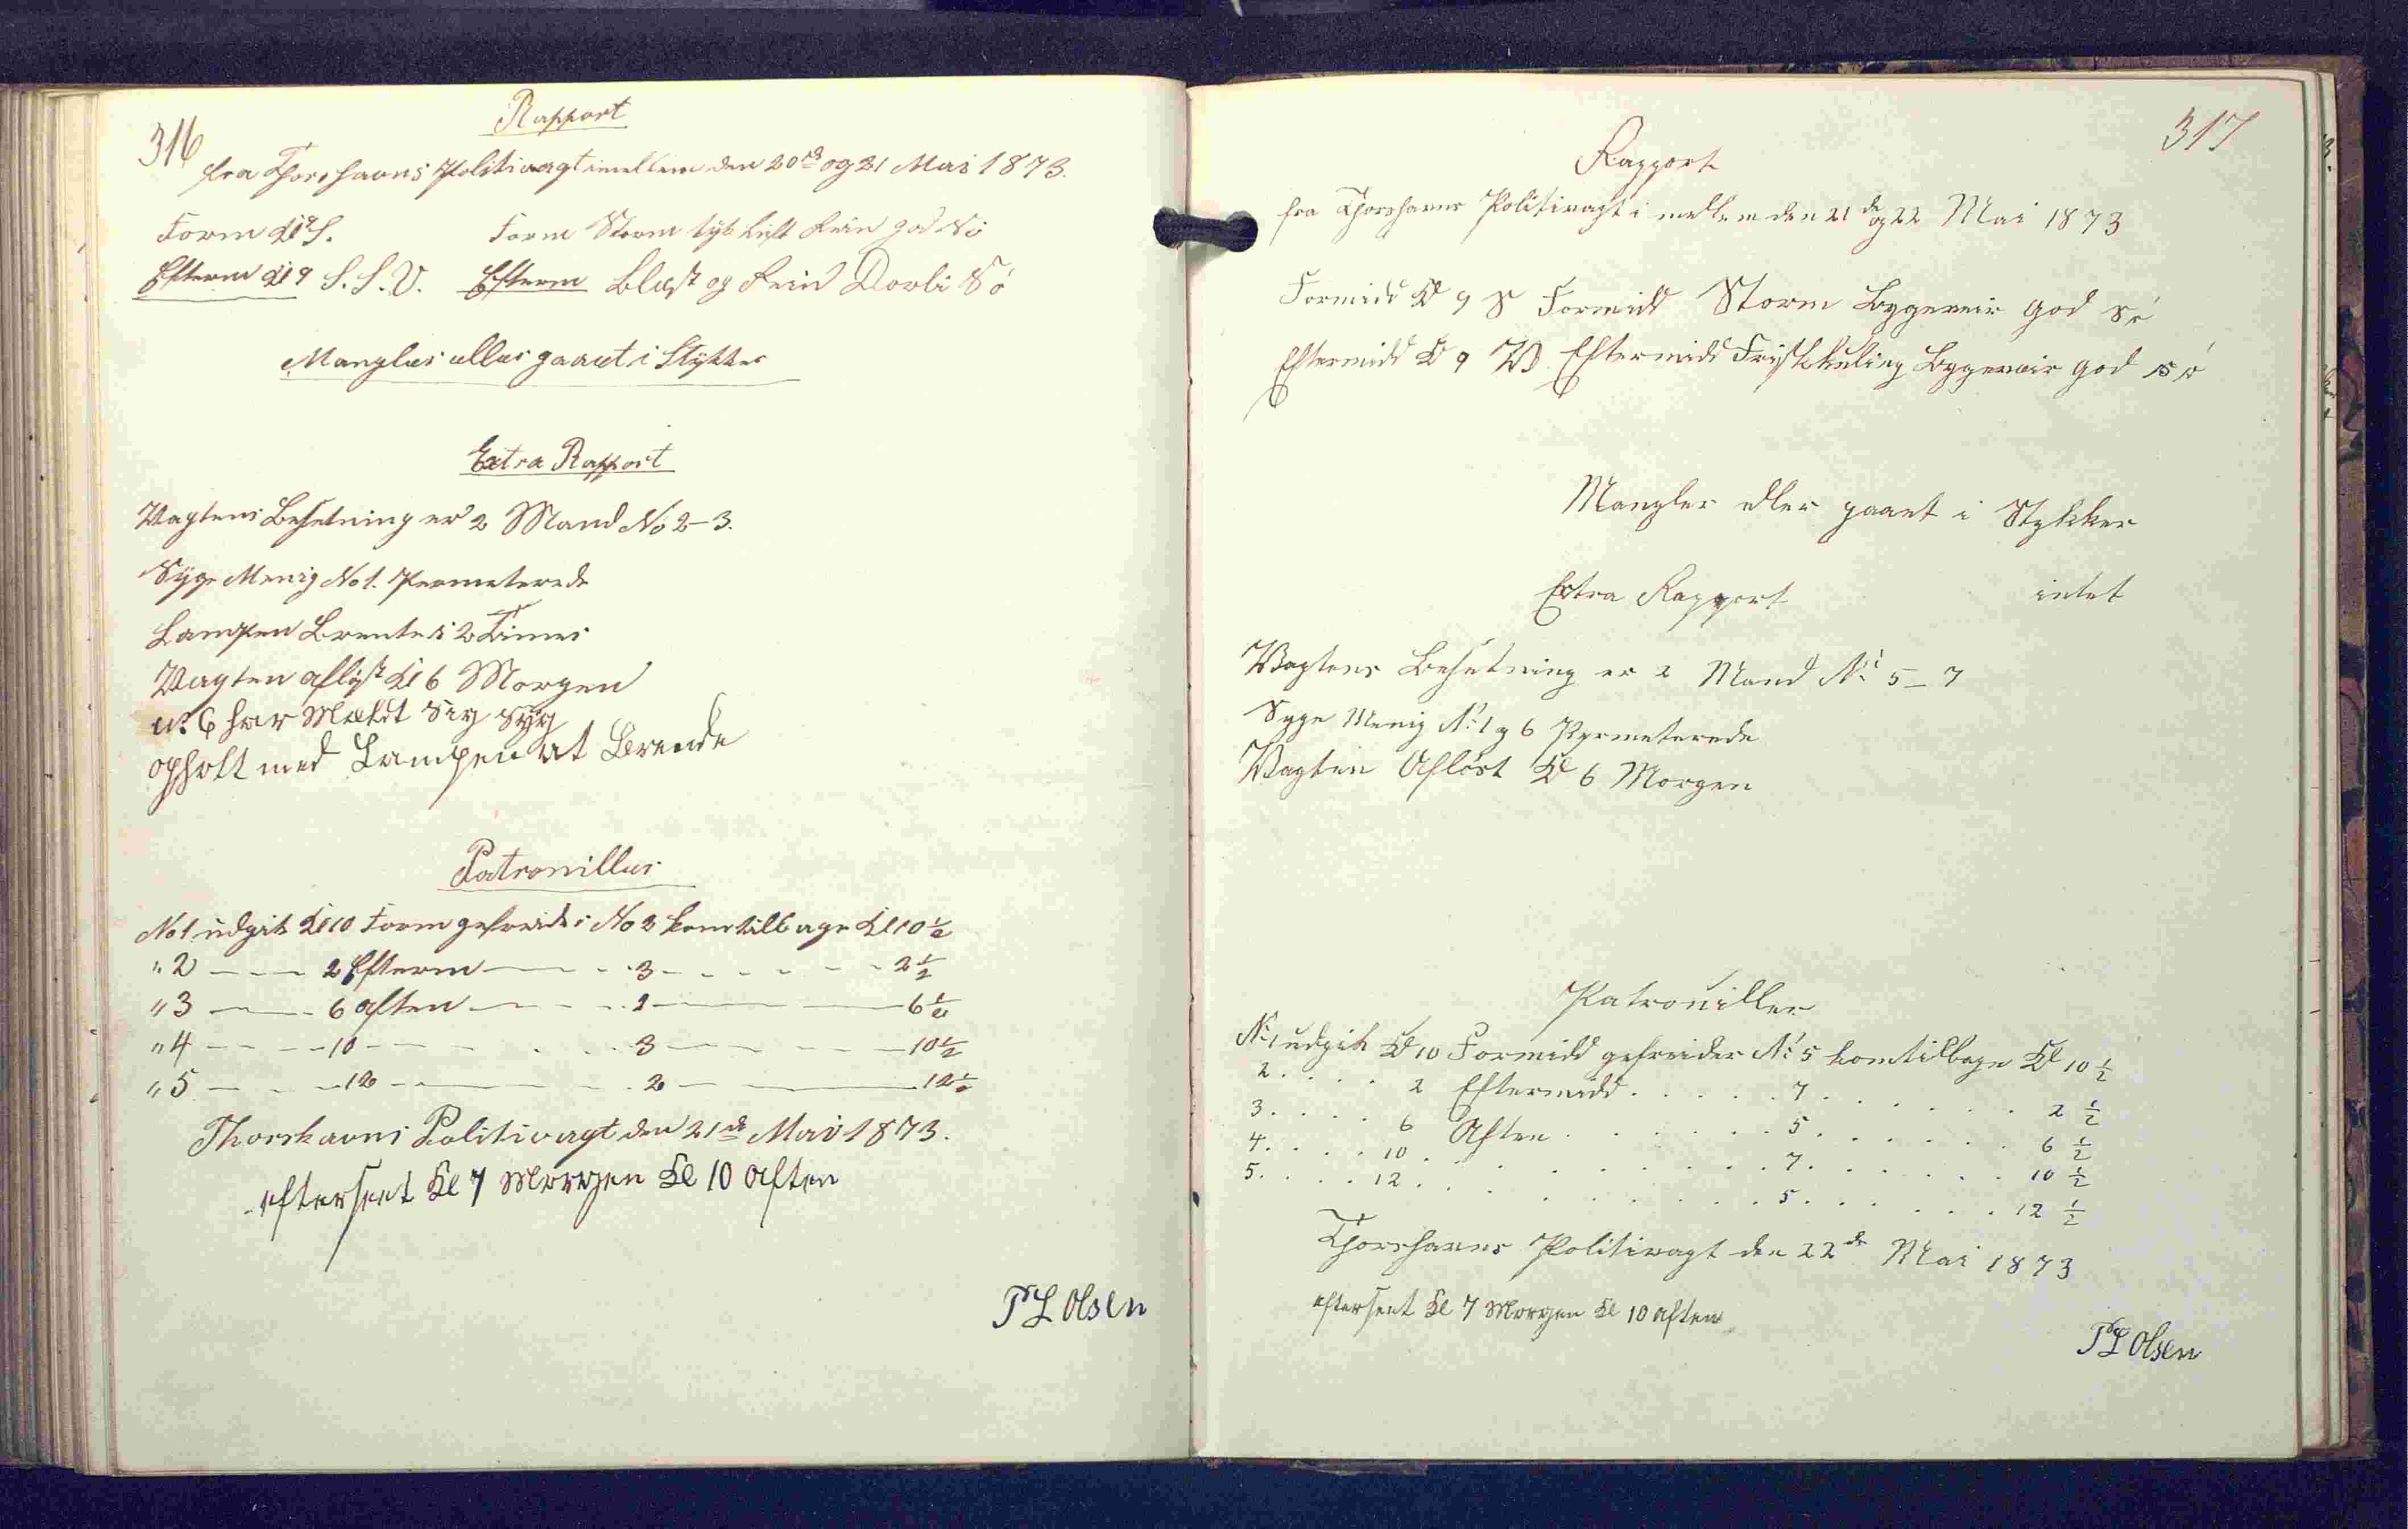 316
Rapport
fra Thorshavns Politivagt imellem den 20de og 21 Mai 1873.
Form Kl 9 S. Form Storm tyk luft Rein god Sö
Efterm Kl 9 S. S. V. Efterm Blæst og Rein Dorli Sö
Manglus ellus gaaet i Stykker
Extra Rapport
Vagtens Besetning er 2 Mand No 2-3.
Syge Menig No 1. Permeterede
Lampen Brente i 2 Timer
Vagten aflyst Kl 6 Morgen
No. 6 har Mældt Sig Syg
opholt med Lampen at Brende
Patrouillus
No 1 udgik Kl 10 Form gefreider No 2 kom tilbage Kl 10 1/2
" 2 — — 2 Efterm — - - 3 - - - - - 2 1/2
" 3 — — 6 aften — - - 2 — — 6 1/2
" 4 - - - 10 - - - - 3 — - - — 10 1/2
" 5 — - - 12 — — 2 — — 12 1/2
Thorshavns Politivagt den 21de Mai 1873.
efterseet Kl 7 Morgen Kl 10 aften
P L Olsen
317
Rapport
fra Thorshavns Politivagt i mellem den 21de og 22 Mai 1873
Formidd Kl 9 S Formidd Storm Bygeveir god Sö
Eftermidd Kl 9 W Eftermidd Friskkuling Bygeveir god sö
Mangler eller gaaet i Stykker
Extra Rapport intet
Vagtens Besetning er 2 Mand No 5 - 7
Syge Menig No 1 og 6 Permeterede
Vagten Aflöst Kl 6 Morgen
Patrouiller
No 1 udgik Kl 10 Formidd gefreider No 5 kom tilbage Kl 10 1/2
2 . . . . 2 Eftermidd . . . . . 7 . . . . . . . 2 1/2
3 . . . . 6 Aften . . . . . . 5 . . . . . . . 6 1/2
4 . . . . 10 . . . . . . . . 7 . . . . . . . 10 1/2
5 . . . . 12 . . . . . . . . 5 . . . . . . . 12 1/2
Thorshavns Politivagt den 22de Mai 1873
efterseet Kl 7 Morgen Kl 10 aften
P L Olsen